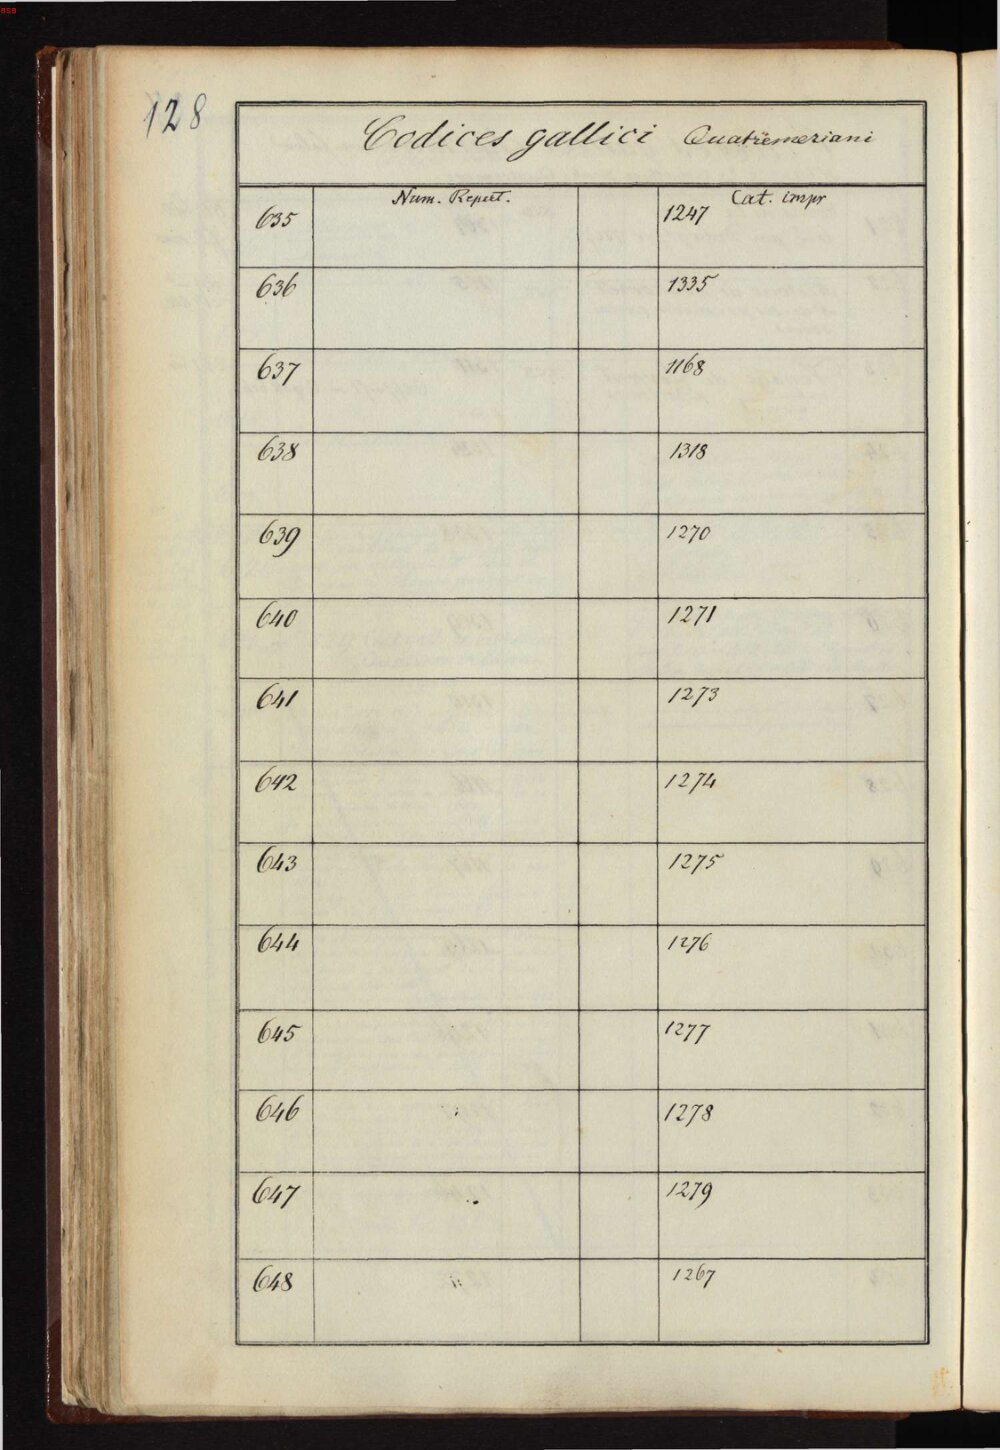 128
Codices gallici Quatremeriani
Num. Repert. Cat. impr
635 1247
636 1335
637 1168
638 1318
639 1270
640 1271
641 1273
642 1274
643 1275
644 1276
645 1277
646 1278
647 1279
648 1267